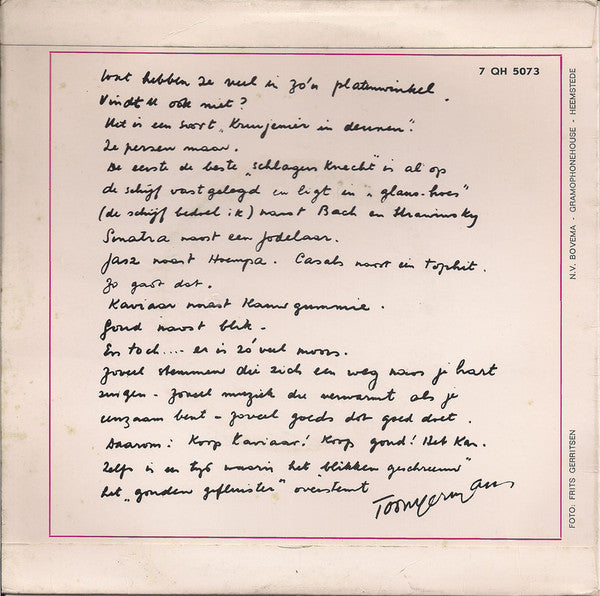 7 QH 5073
Wat hebben ze veel in zo'n platenwinkel.
Vindt U ook niet?
Het is een soort „Kruijenier in deunen".
Ze persen maar.
De eerste de beste „schlagers knecht" is al op
de schijf vastgelegd en ligt in „glans-hoes"
(de schijf bedoel ik) naast Bach en Strawinsky
Sinatra naast een Jodelaar.
Jazz naast Hoempa. Casals naast een Tophit.
Zo gaat dat.
Kaviaar naast Kauwgummie.
Goud naast blik.
En toch.... er is zó veel moois.
Zoveel stemmen die zich een weg naar je hart
zingen - zoveel muziek die verwarmt als je
eenzaam bent - zoveel goeds dat goed doet.
Daarom: Koop Kaviaar! Koop goud! Het Kan.
Zelfs in een tijd waarin het „blikken geschreeuw"
het „gouden gefluister" overstemt
Toon Hermans
FOTO: FRITS GERRITSEN
N.V. BOVEMA - GRAMOPHONEHOUSE - HEEMSTEDE